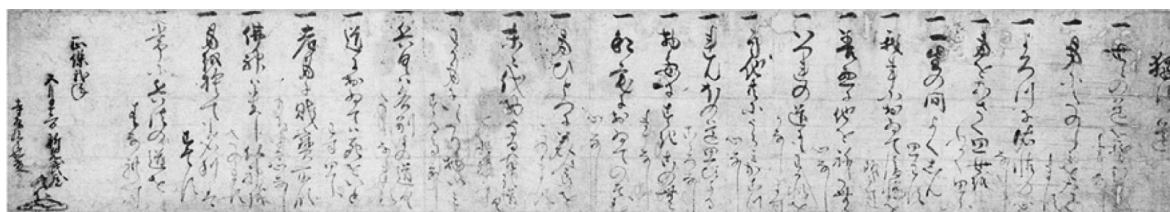 獨行道
一 世々の道をそむく事なし
一 身にたのしみをたくます
一 よろつに依怙の心なし
一 身をあさく思世をふかく思ふ
一 一生の間よくしん思はす
一 我事におゐて後悔をせす
一 善悪に他をねたむ心なし
一 いつれの道にもわかれをかなします
一 自他共にうらみかこつ心なし
一 れんほの道思ひよるこゝろなし
一 物毎にすきこのむ事なし
一 私宅におゐてのそむ心なし
一 身ひとつに美食をこのます
一 末々代物なる古き道具所持せす
一 わか身にいたり物いみする事なし
一 兵具は各別よの道具たしなます
一 道におゐては死をいとはす思ふ
一 老身に財寶所領もちゆる心なし
一 佛神は貴し佛神をたのます
一 身を捨ても名利はすてす
一 常に兵法の道をはなれす
正保弐年
五月十二日 新免武藏